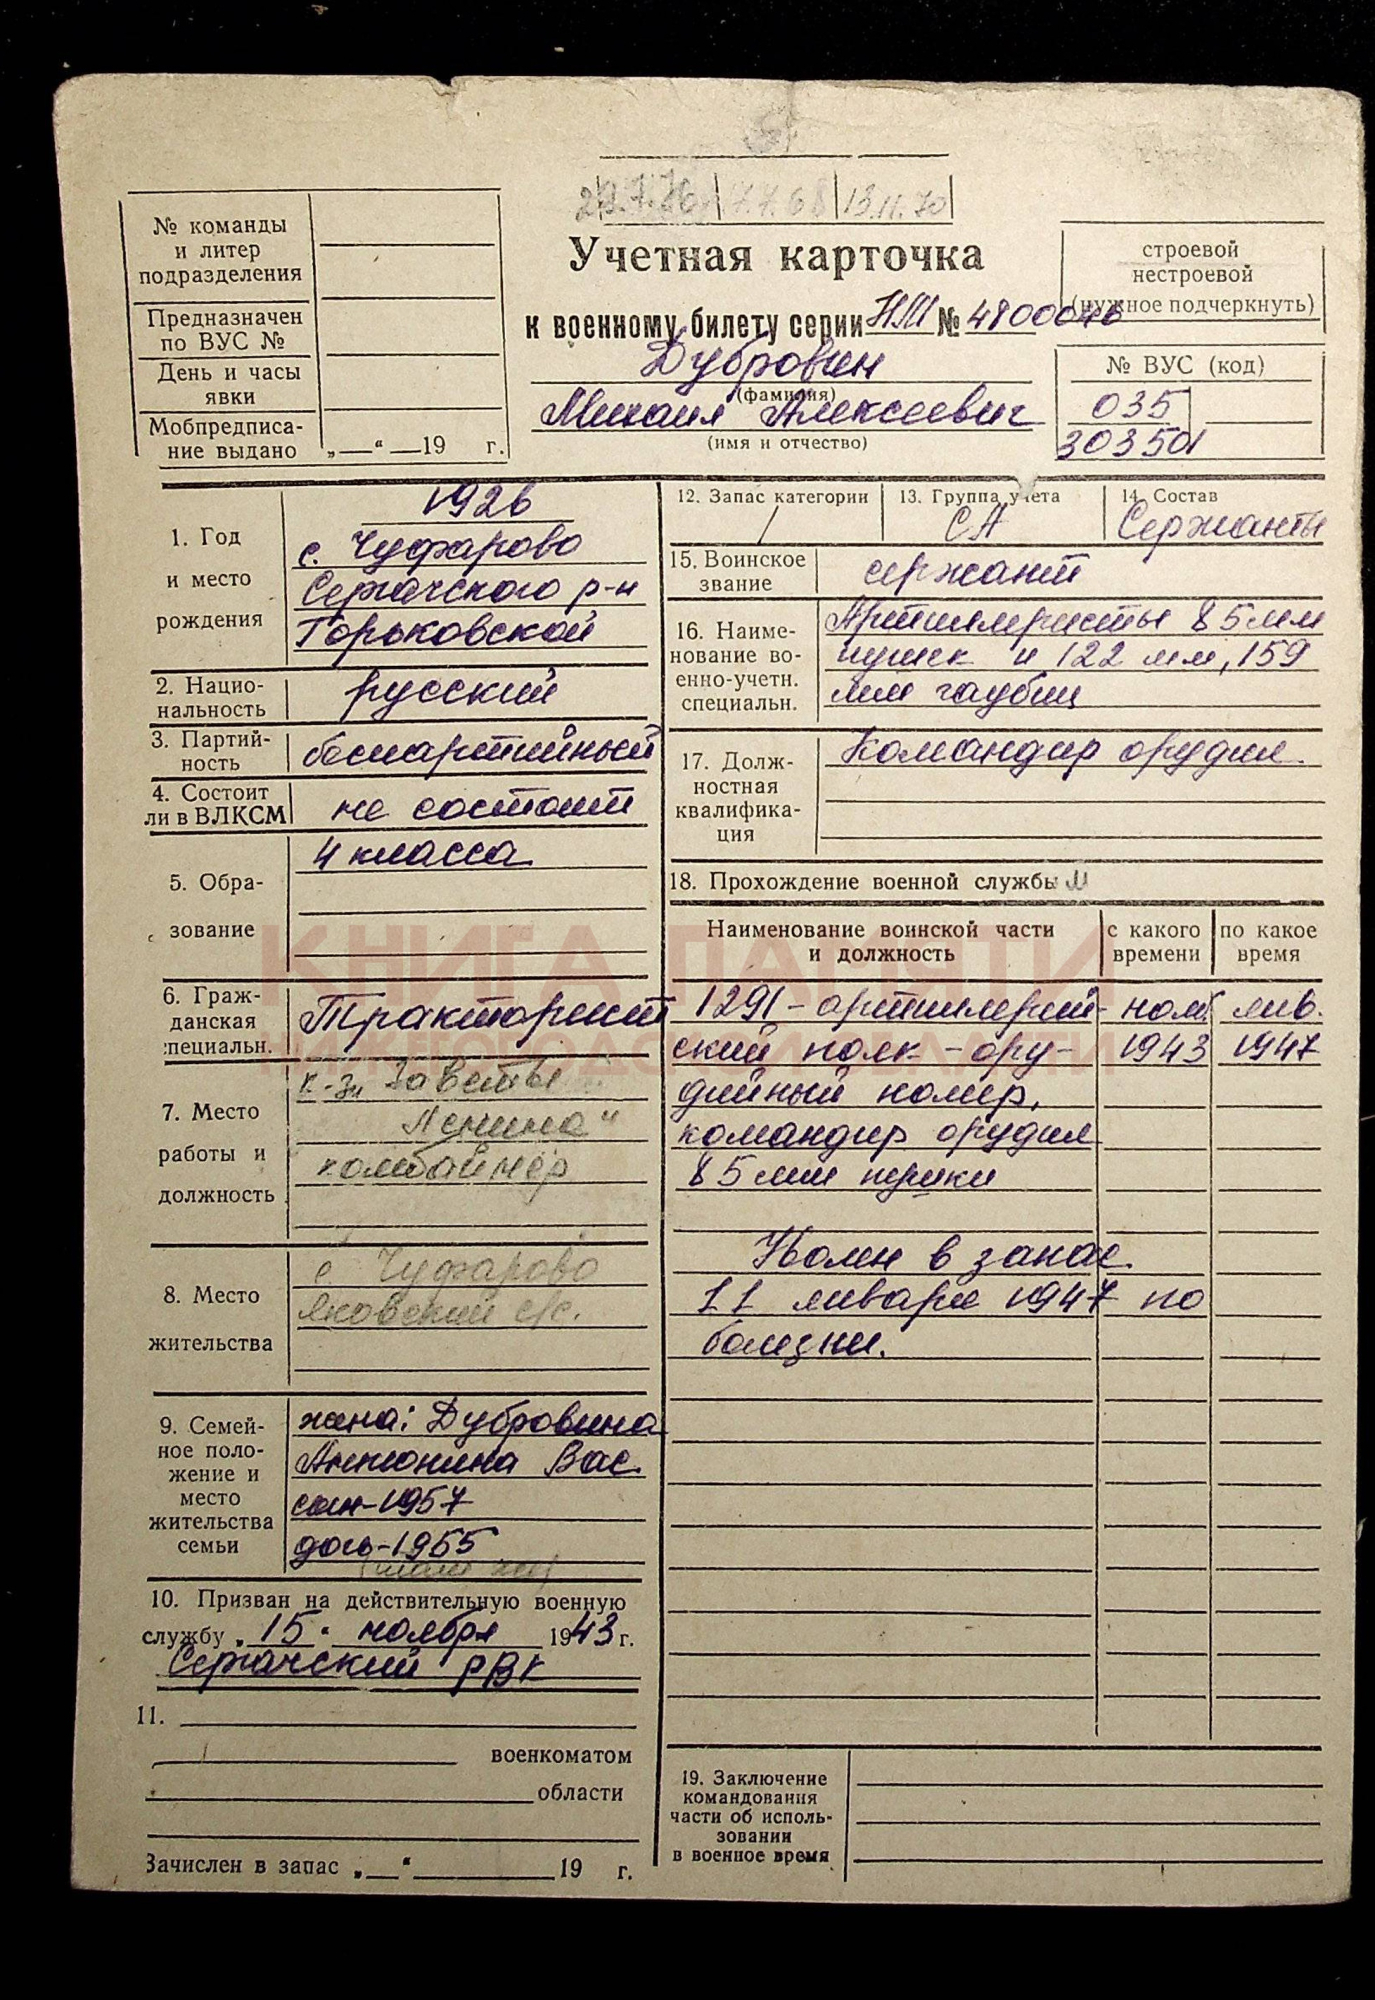 7.7.68 13.11.70
№ команды
и литер
подразделения
Предназначен
по ВУС №
День и часы
явки
Мобпредписа-
ние выдано „ — “ — 19 г.
Учетная карточка
к военному билету серии НШ № 4800046
Дубровин
(фамилия)
Михаил Алексеевич
(имя и отчество)
строевой
нестроевой
(нужное подчеркнуть)
№ ВУС (код)
035
303501
1. Год
и место
рождения
1926
с. Чуфарово
Сергачского р-н
Горьковской
2. Нацио-
нальность
русский
3. Партий-
ность
беспартийный
4. Состоит
ли в ВЛКСМ
не состоит
5. Обра-
зование
4 класса
6. Граж-
данская
специальн.
Тракторист
7. Место
работы и
должность
к-з „Заветы
Ленина"
комбайнёр
8. Место
жительства
с Чуфарово
Яновский с/с.
9. Семей-
ное поло-
жение и
место
жительства
семьи
жена: Дубровина
Антонина Вас.
сын-1957
дочь-1955
10. Призван на действительную военную
службу „15" ноября 1943 г.
Сергачский РВК
11.
военкоматом
области
Зачислен в запас „ — “ 19 г.
12. Запас категории
13. Группа учета
14. Состав
/
СА
Сержанты
15. Воинское
звание
сержант
16. Наиме-
нование во-
енно-учетн.
специальн.
Артиллеристы 85мм
пушек и 122 мм, 159
мм гаубиц
17. Долж-
ностная
квалифика-
ция
Командир орудия.
18. Прохождение военной службы
Наименование воинской части
и должность
с какого
времени
по какое
время
1291-артиллерий- нояб. янв.
ский полк -ору- 1943 1947
дийный номер,
командир орудия
85мм пушки
Уволен в запас
11 января 1947 по
болезни.
19. Заключение
командования
части об исполь-
зовании
в военное время
КНИГА ПАМЯТИ
НИЖЕГОРОДСКОЙ ОБЛАСТИ